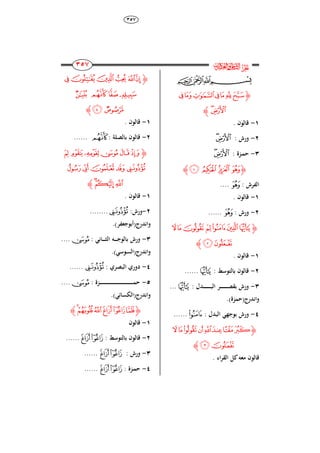 ٣٥٧
٣٥٧
سَبَّحَ لِلَّهِ مَا فِي ٱلسَّمَٰوَٰتِ وَمَا فِي
ٱلْأَرْضِ
١- قالون .
٢- ورش : ٱلْأَرْضِ
٣- حمزة : ٱلْأَرْضِ
وَهُوَ ٱلْعَزِيزُ ٱلْحَكِيمُ ١
الفرش : وَهُوَ ....
١- قالون .
٢- ورش : وَهُوَ ......
يَٰٓأَيُّهَا ٱلَّذِينَ ءَامَنُوا۟ لِمَ تَقُولُونَ مَا لَا
تَفْعَلُونَ ٢
١- قالون .
٢- قالون بالتوسط : يَٰٓأَيُّهَا ......
٣- ورش بقصر البدل : يَٰٓأَيُّهَا ...
واندرج(حمزة).
٤- ورش بوجهي البدل : ءَامَنُوا۟ ......
كَبُرَ مَقْتًا عِندَ ٱللَّهِ أَن تَقُولُوا۟ مَا لَا
تَفْعَلُونَ ٣
قالون معه كل القراء .
إِنَّ ٱللَّهَ يُحِبُّ ٱلَّذِينَ يُقَٰتِلُونَ فِي
سَبِيلِهِۦ صَفًّا كَأَنَّهُم بُنْيَٰنٌ
مَّرْصُوصٌ ٤
١- قالون .
٢- قالون بالصلة : كَأَنَّهُم ......
وَإِذْ قَالَ مُوسَىٰ لِقَوْمِهِۦ يَٰقَوْمِ لِمَ
تُؤْذُونَنِي وَقَد تَّعْلَمُونَ أَنِّي رَسُولُ
ٱللَّهِ إِلَيْكُمْ
١- قالون .
٢- ورش: تُؤْذُونَنِي ........
واندرج(أبوجعفر).
٣- ورش بالوجه الثاني : مُوسَىٰ ....
واندرج(السوسي).
٤- دوري البصري : تُؤْذُونَنِي ......
٥- حمزة : مُوسَىٰ ....
واندرج(الكسائي).
فَلَمَّا زَاغُوٓا۟ أَزَاغَ ٱللَّهُ قُلُوبَهُمْ
١- قالون
٢- قالون بالتوسط : زَاغُوٓا۟ أَزَاغَ ......
٣- ورش : زَاغُوٓا۟ أَزَاغَ ......
٤- حمزة : زَاغُوٓا۟ أَزَاغَ ......